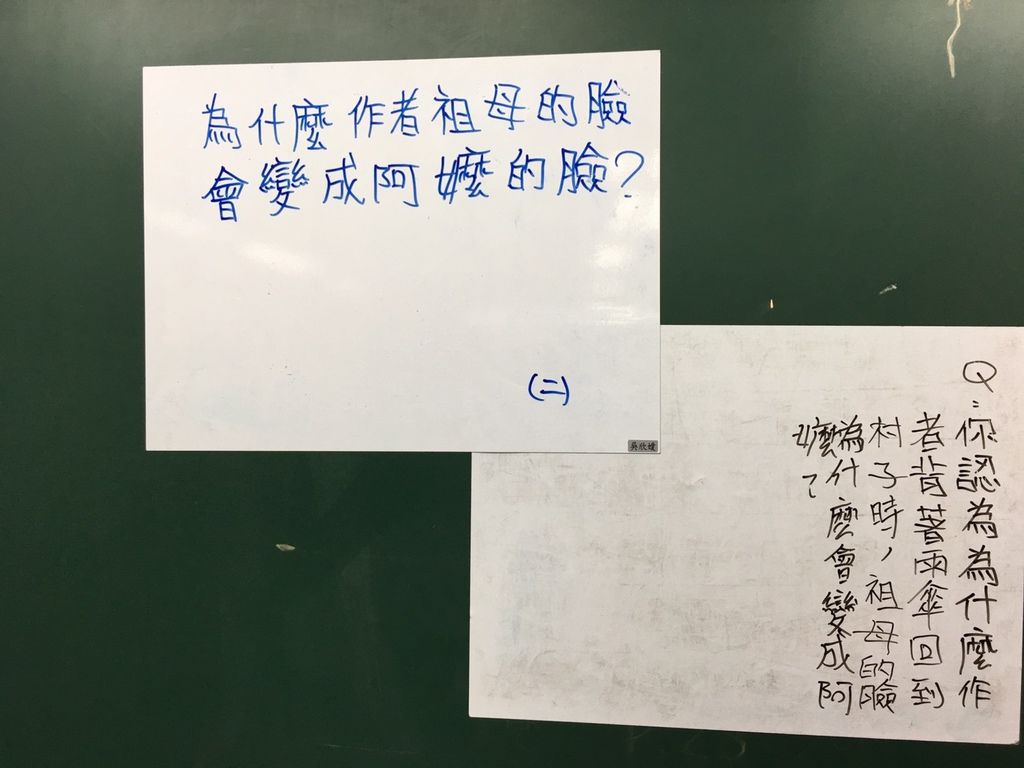 為什麼作者祖母的臉
會變成阿嬤的臉?
(二)
吳欣嬑
Q:
你認為為什麼作
者背著雨傘回到
村子時,祖母的臉
為什麼會變成阿
嬤?